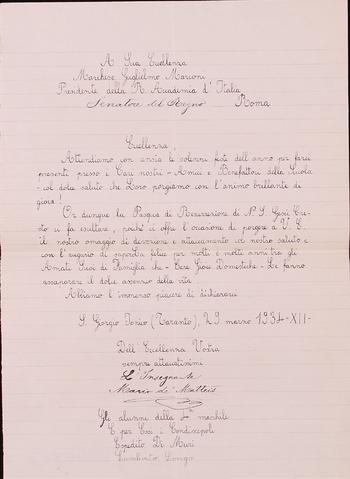 A Sua Eccellenza
Marchese Guglielmo Marconi
Presidente della R. Accademia d'Italia
Senatore del Regno Roma
Eccellenza,
Attendiamo con ansia le solenni feste dell'anno per farci
presenti presso i Cari nostri - Amici e Benefattori della Scuola
- col dolce saluto che Loro porgiamo con l'animo brillante di
gioia!
Or dunque la Pasqua di Resurrezione di N. S. Gesù Cri-
sto ci fa esultare, poiché ci offre l'occasione di porgere a V. E.
il nostro omaggio di devozione e attaccamento col nostro saluto e
con l'augurio di saperla felice per molti e molti anni tra gli
Amati Suoi di Famiglia che - Care Gioie Domestiche - Le fanno
assaporare il dolce ascendio della vita.
Abbiamo l'immenso piacere di dichiararci
S. Giorgio Jonico (Taranto), 29 marzo 1934-XII-
Dell'Eccellenza Vostra
sempre attaccatissimi
L'Insegnante
Mario de' Matteis
Gli alunni della 4ª maschile
E per Essi i Condiscepoli
Cosimo Di Muri
Longo